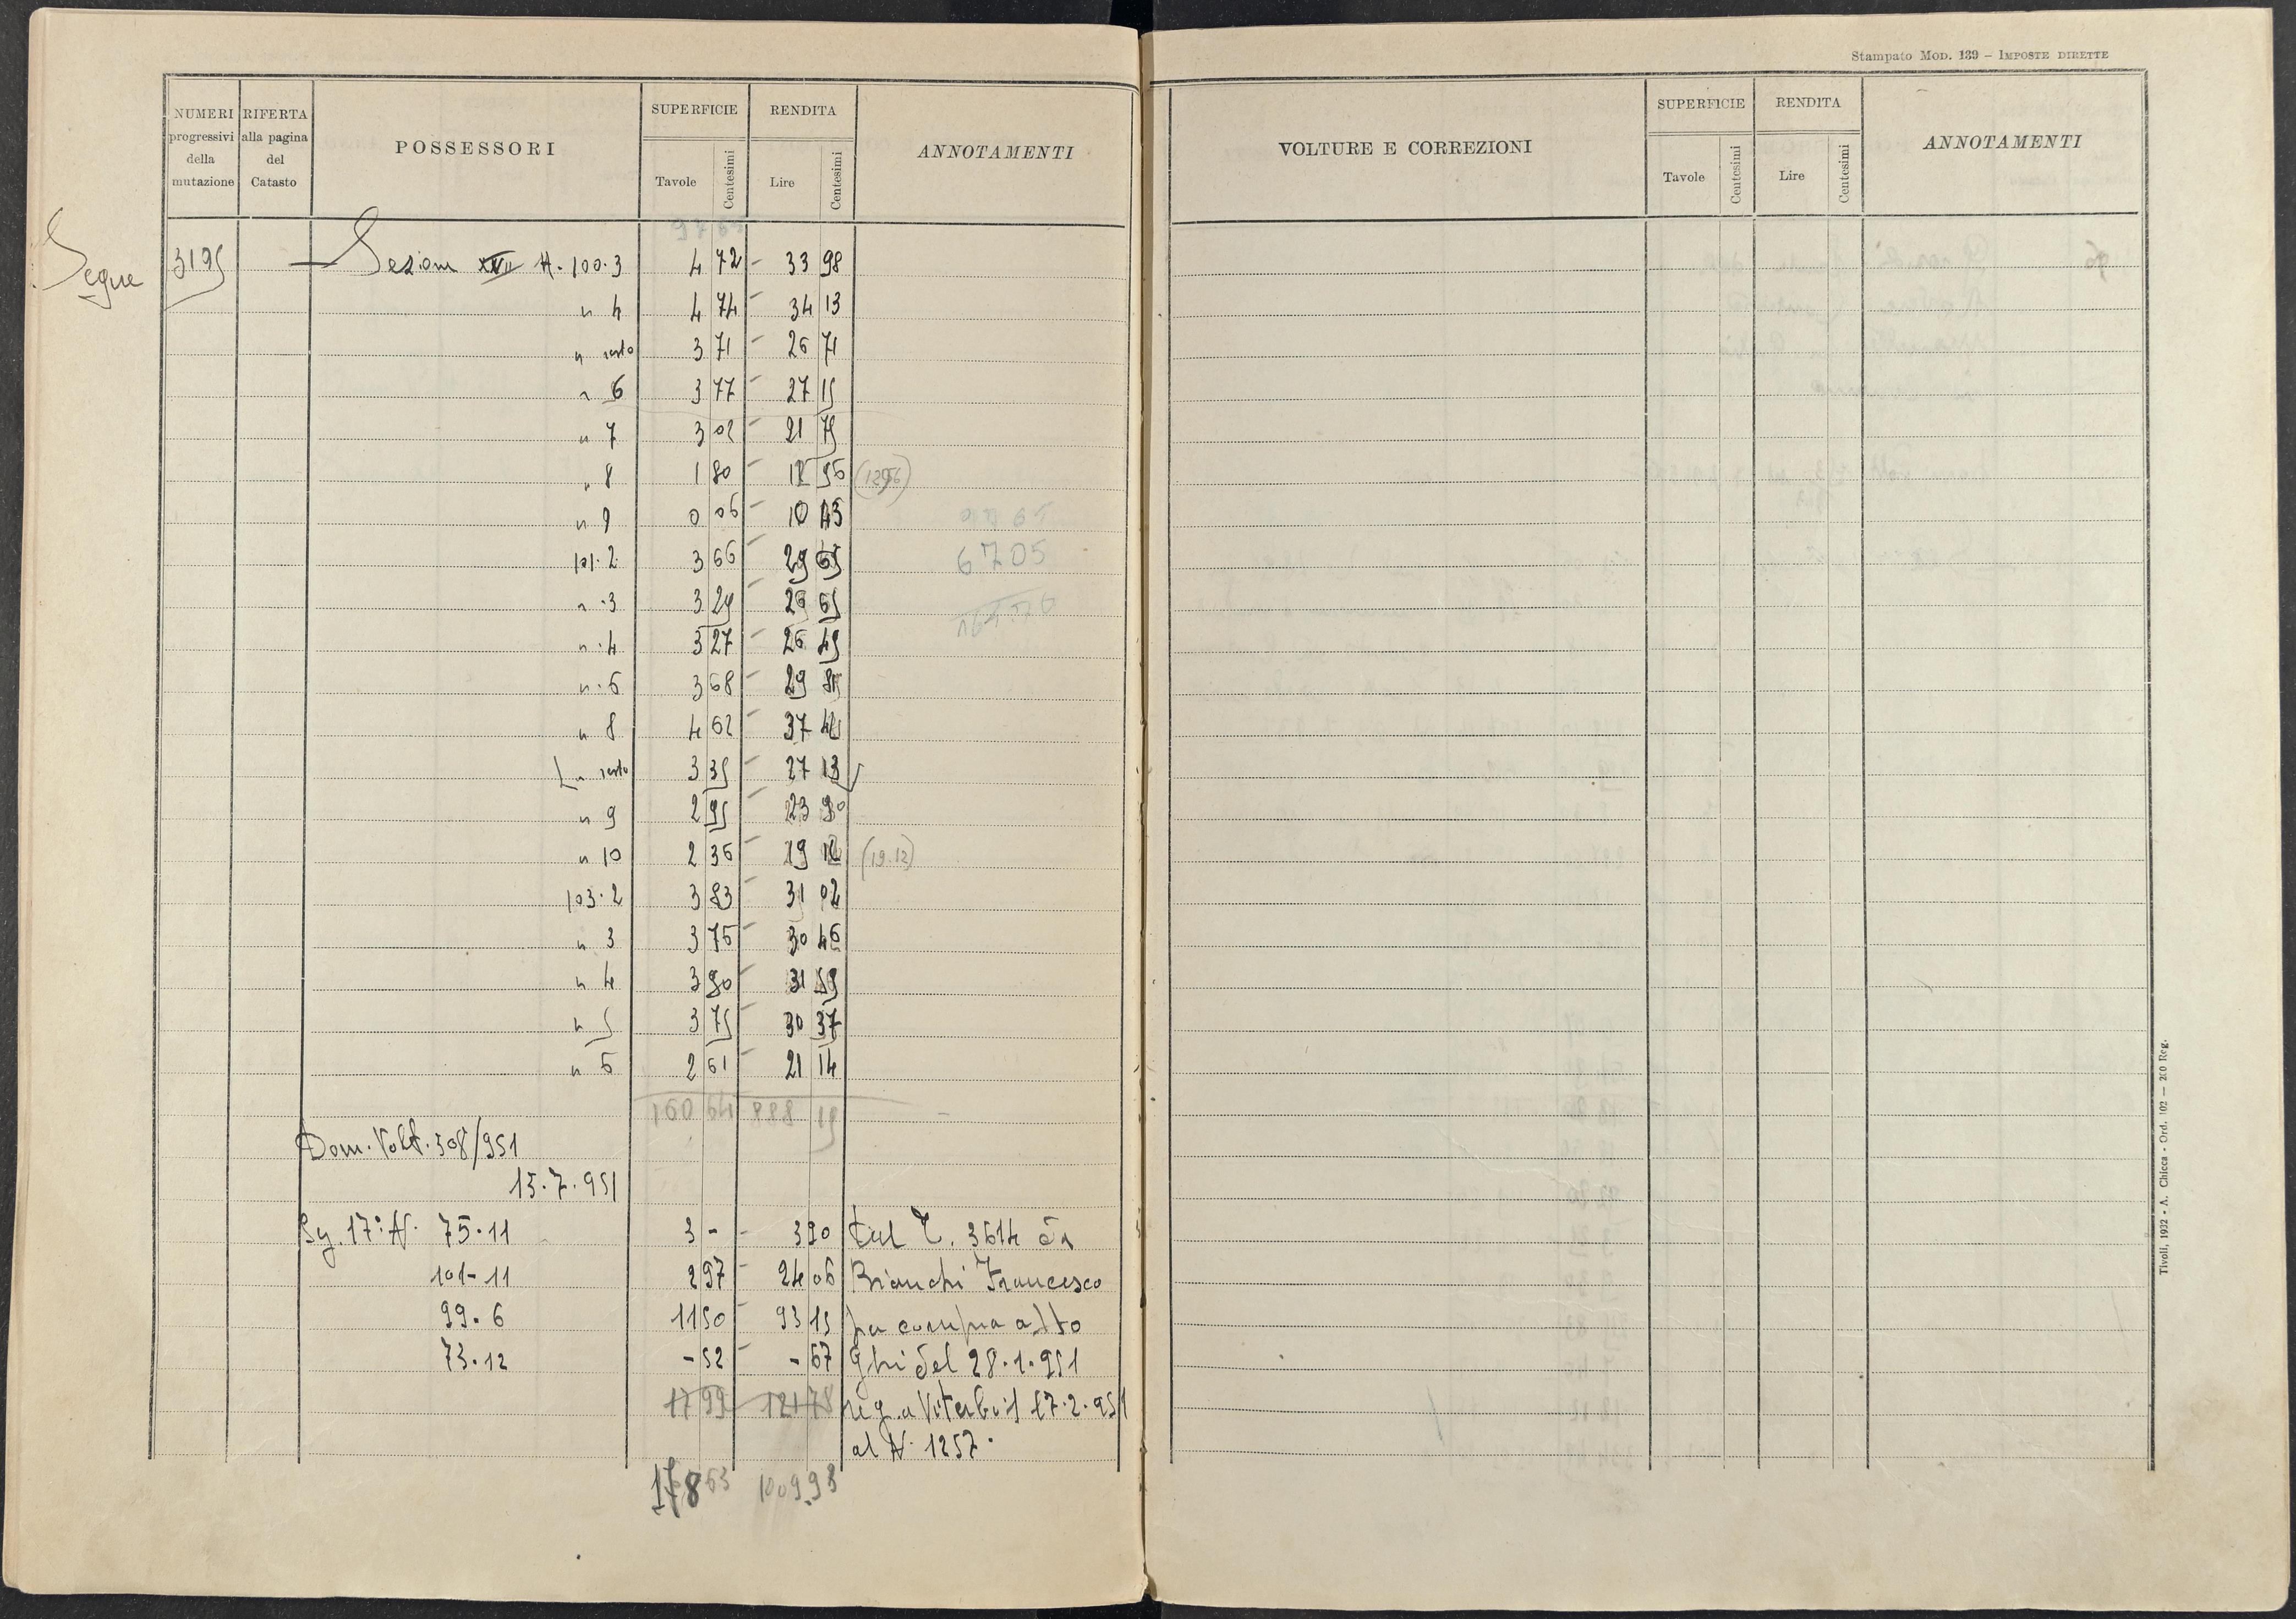 Stampato Mod. 139 – Imposte dirette
NUMERI progressivi della mutazione | RIFERTA alla pagina del Catasto | POSSESSORI | SUPERFICIE Tavole Centesimi | RENDITA Lire Centesimi | ANNOTAMENTI
Segue 3195 Sezione XVII N. 100.3 4 72 - 33 98
" 4 4 74 - 34 13
" resto 3 71 - 26 71
" 6 3 77 - 27 15
" 7 3 02 - 21 75
" 8 1 80 - 12 96 (1296)
" 9 0 06 - 10 43
101.2 3 66 - 29 65
" .3 3 29 - 26 65
" .4 3 27 - 26 49
" .6 3 68 - 29 81
" 8 4 62 - 37 42
" resto 3 35 27 13
" 9 2 95 - 23 90
" 10 2 36 - 19 12 (19.12)
103.2 3 83 - 31 02
" 3 3 76 - 30 46
" 4 3 90 - 31 59
" 5 3 75 - 30 37
" 6 2 61 - 21 14
160 64 888 19
6705
Dom. Volt. 308/951
15.7.951
Sez. 17ª N. 75.11 3 - - 3 90 dal C. 3614 di
101-11 2 97 - 24 06 Bianchi Francesco
99.6 11 50 - 93 15 per compra atto
73.12 - 52 - - 67 Ghi del 28.1.951
17 99 121 78 reg. a Viterbo il 17.2.951
al N. 1257.
178 63 1009.98
VOLTURE E CORREZIONI | SUPERFICIE Tavole Centesimi | RENDITA Lire Centesimi | ANNOTAMENTI
Tivoli, 1932 - A. Chicca - Ord. 102 — 200 Reg.